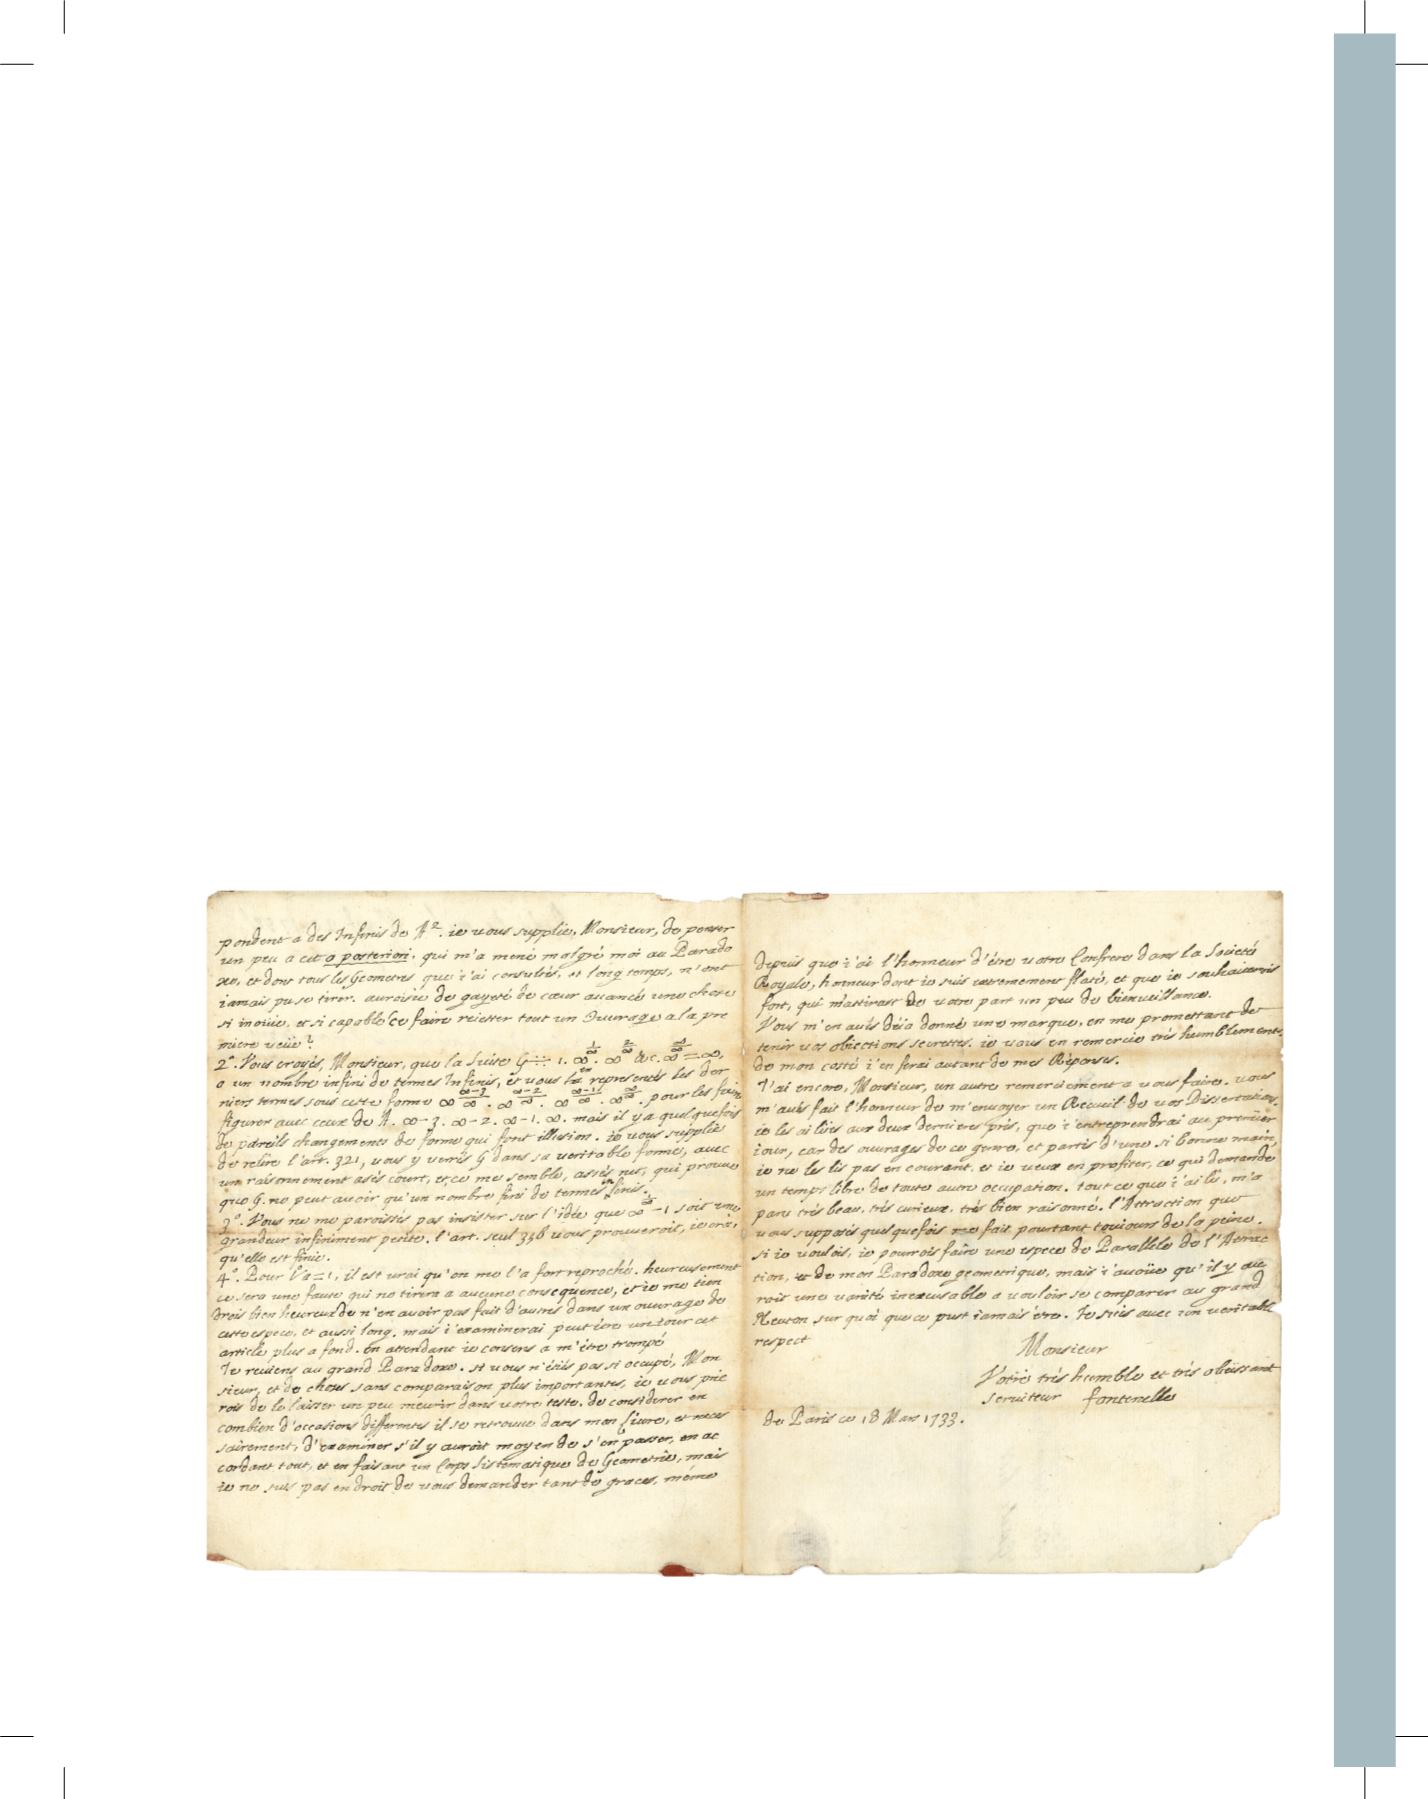 pondent a des Infinis de A². ie vous supplie, Monsieur, de penser
un peu a cet a posteriori, qui m'a mené malgré moi au Parado
xe, et dont tous les Geometres que i'ai consultés, et long temps, n'ont
iamais pu se tirer. aurois ie de gayeté de cœur avancé une chose
si inoüie, et si capable de faire reietter tout un Ouvrage a la pre
miere veüe?
2°. Vous croyés, Monsieur, que la Suite G ∺ 1. ∞^{1/∞}. ∞^{2/∞} &c. ∞^{∞/∞} = ∞,
a un nombre infini de termes Infinis, et vous en representés les der
niers termes sous cette forme ∞^{∞-3/∞}. ∞^{∞-2/∞}. ∞^{∞-1/∞}. ∞^{∞/∞}. pour les faire
figurer avec ceux de A. ∞-3. ∞-2. ∞-1. ∞. mais il y a quelquefois
de pareils changements de forme qui font illusion. ie vous supplie
de relire l'art. 321, vous y verrés G dans sa veritable forme, avec
un raisonnement asés court, et, ce me semble, assés net, qui prouve
que G. ne peut avoir qu'un nombre fini de termes infinis.
3°. Vous ne me paroissés pas insister sur l'idée que ∞^{1/∞} -1 soit une
grandeur infiniment petite. l'art. seul 336 vous prouveroit, ie croi,
qu'elle est finie.
4°. Pour il est vrai qu'on me l'a fort reproché. heureusement
ce sera une faute qui ne tirera a aucune consequence, et ie me tien
drois bien heureux de n'en avoir pas fait d'autres dans un ouvrage de
cette espece, et aussi long. mais i'examinerai peut être un iour cet
article plus a fond. en attendant ie consens a m'être trompé
Ie reviens au grand Paradoxe. si vous n'étiés pas si occupé, Mon
sieur, et de choses sans comparaison plus importantes, ie vous prie
rois de le laisser un peu meurir dans votre teste, de considerer en
combien d'occasions differentes il se retrouve dans mon Livre, et neces
sairement, d'examiner s'il y auroit moyen de s'en passer, en ac
cordant tout, et en faisant un Corps sistematique de Geometrie, mais
ie ne suis pas en droit de vous demander tant de graces, même
depuis que i'ai l'honneur d'être votre Confrere dans la Societé
Royale, honneur dont ie suis extremement flaté, et que ie souhaiterois
fort, qui m'attirast de votre part un peu de bienveillance.
Vous m'en avés déja donné une marque, en me promettant de
tenir vos obiections secrettes. ie vous en remercie trés humblement.
de mon costé i'en ferai autant de mes Réponses.
I'ai encore, Monsieur, un autre remerciement a vous faire. vous
m'avés fait l'honneur de m'envoyer un Recueil de vos Dissertations.
ie les ai lües aux deux dernieres prés, que i'entreprendrai au premier
iour, car des ouvrages de ce genre, et partis d'une si bonne main,
ie ne les lis pas en courant, et ie veux en profiter, ce qui demande
un temps libre de toute autre occupation. tout ce que i'ai lû, m'a
paru trés beau, trés curieux, trés bien raisonné. l'Attraction que
vous supposés quelquefois me fait pourtant touiours de la peine.
si ie voulois, ie pourrois faire une espece de Parallele de l'Attrac
tion, et de mon Paradoxe geometrique, mais i'avoüe qu'il y au
roit une vanité inexcusable a vouloir se comparer au grand
Neuton sur quoi que ce pust iamais être. Ie suis avec un veritable
respect
Monsieur
Votre trés humble et trés obeissant
serviteur Fontenelle
de Paris ce 18 Mars 1733.